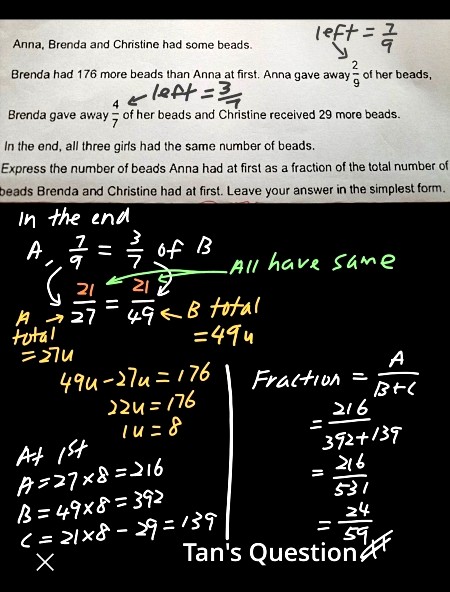 left = 7/9
Anna, Brenda and Christine had some beads.
Brenda had 176 more beads than Anna at first. Anna gave away 2/9 of her beads,
left = 3/7
Brenda gave away 4/7 of her beads and Christine received 29 more beads.
In the end, all three girls had the same number of beads.
Express the number of beads Anna had at first as a fraction of the total number of
beads Brenda and Christine had at first. Leave your answer in the simplest form.
In the end
A, 7/9 = 3/7 of B
All have same
21/27 = 21/49
A total = 27u
B total = 49u
49u - 27u = 176
22u = 176
1u = 8
At 1st
A = 27 x 8 = 216
B = 49 x 8 = 392
C = 21 x 8 - 29 = 139
Fraction = A/B+C
= 216/392+139
= 216/531
= 24/59
Tan's Question